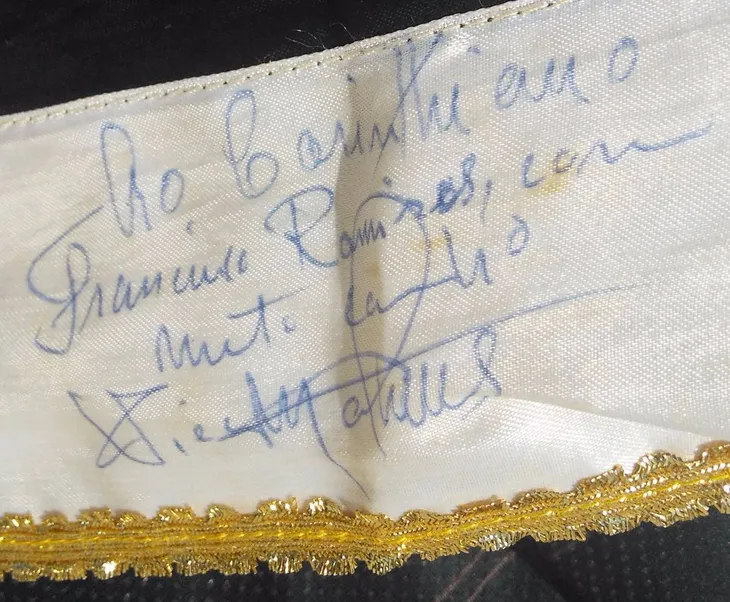 Ao Corinthiano
Francisco Ramires, com
muito carinho
Vicente Matheus